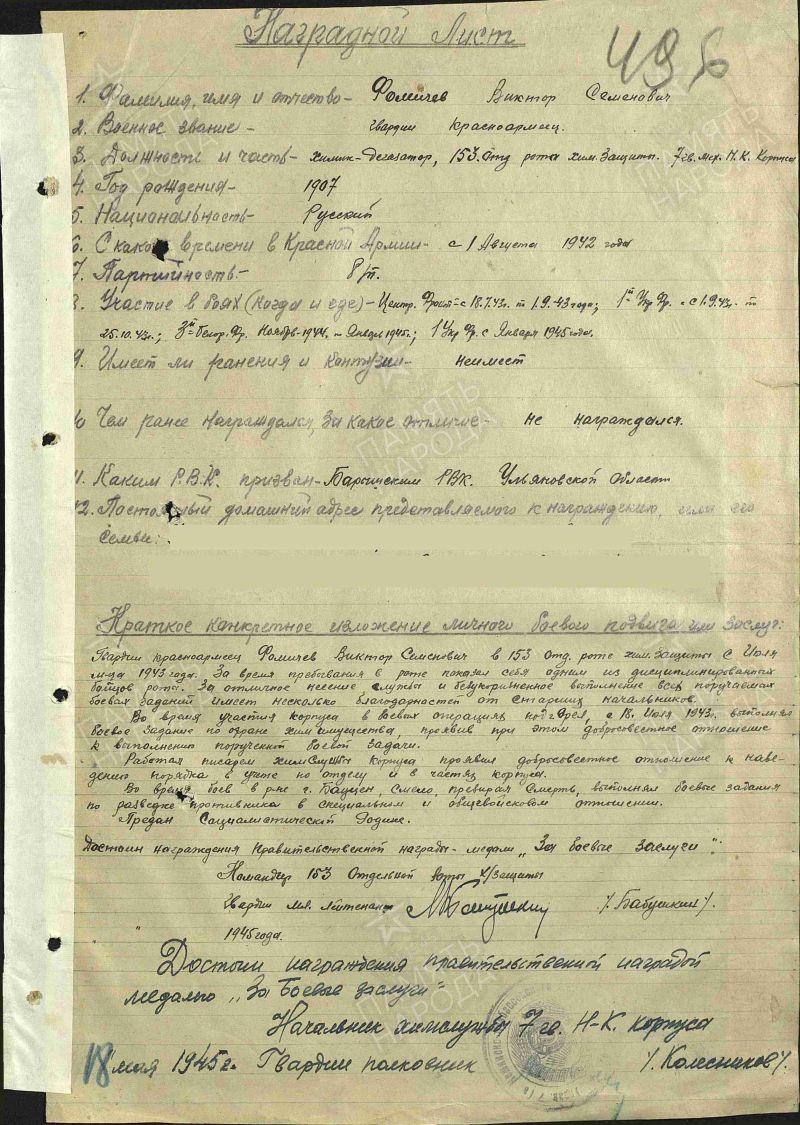 Наградной Лист
496
1. Фамилия, имя и отчество - Фомичев Виктор Семенович
2. Военное звание - гвардии красноармеец.
3. Должность и часть - химик-дегазатор, 153 отд рота хим. защиты. 7 гв. мех. Н. К. Корпуса
4. Год рождения - 1907
5. Национальность - Русский
6. С какого времени в Красной Армии - с 1 Августа 1942 года
7. Партийность - б/п.
8. Участие в боях (когда и где) - Центр. Фронт - с 18.7.43г. по 1.9.43 года; 1й Укр Фр. - с 1.9.43г. по
25.10.43г.; 3й Белор. Фр. Ноябрь-1944 - Январь 1945г.; 1 Укр Фр. с Января 1945 года.
9. Имеет ли ранения и контузии - неимеет
10 Чем ранее награждался, за какое отличие - не награждался.
11. Каким Р.В.К. призван - Барышским РВК. Ульяновской области
12. Постоянный домашний адрес представляемого к награждению, или его
семьи:
Краткое конкретное изложение личного боевого подвига или заслуг:
Гвардии красноармеец Фомичев Виктор Семенович в 153 отд. роте хим. защиты с Июля
м-ца 1943 года. За время пребывания в роте показал себя одним из дисциплинированных
бойцов роты. За отличное несение службы и безукоризненное выполнение всех поручаемых
боевых заданий имеет несколько благодарностей от старших начальников.
Во время участия корпуса в боевых операциях с 18. Июля 1943г. выполнял
боевое задание по охране хим имущества, проявив при этом добросовестное отношение
к выполнению порученной боевой задачи.
Работая писарем химслужбы корпуса проявил добросовестное отношение к наве-
дению порядка в учете по отделу и в частях корпуса.
Во время боев в р-не г. Бауцен, смело, презирая смерть, выполнял боевые задания
по разведке противника в специальном и общевойсковом отношении.
Предан Социалистической Родине.
Достоин награждения Правительственной награды - медали "За боевые заслуги".
Командир 153 Отдельной роты х/защиты
Гвардии мл. лейтенант /Бабушкин/.
" " 1945 года.
Достоин награждения правительственной наградой
медалью "За Боевые заслуги"
Начальник химслужбы 7 гв. Н-К. корпуса
18 мая 1945 г. Гвардии полковник /Колесников/.
ПАМЯТЬ НАРОДА